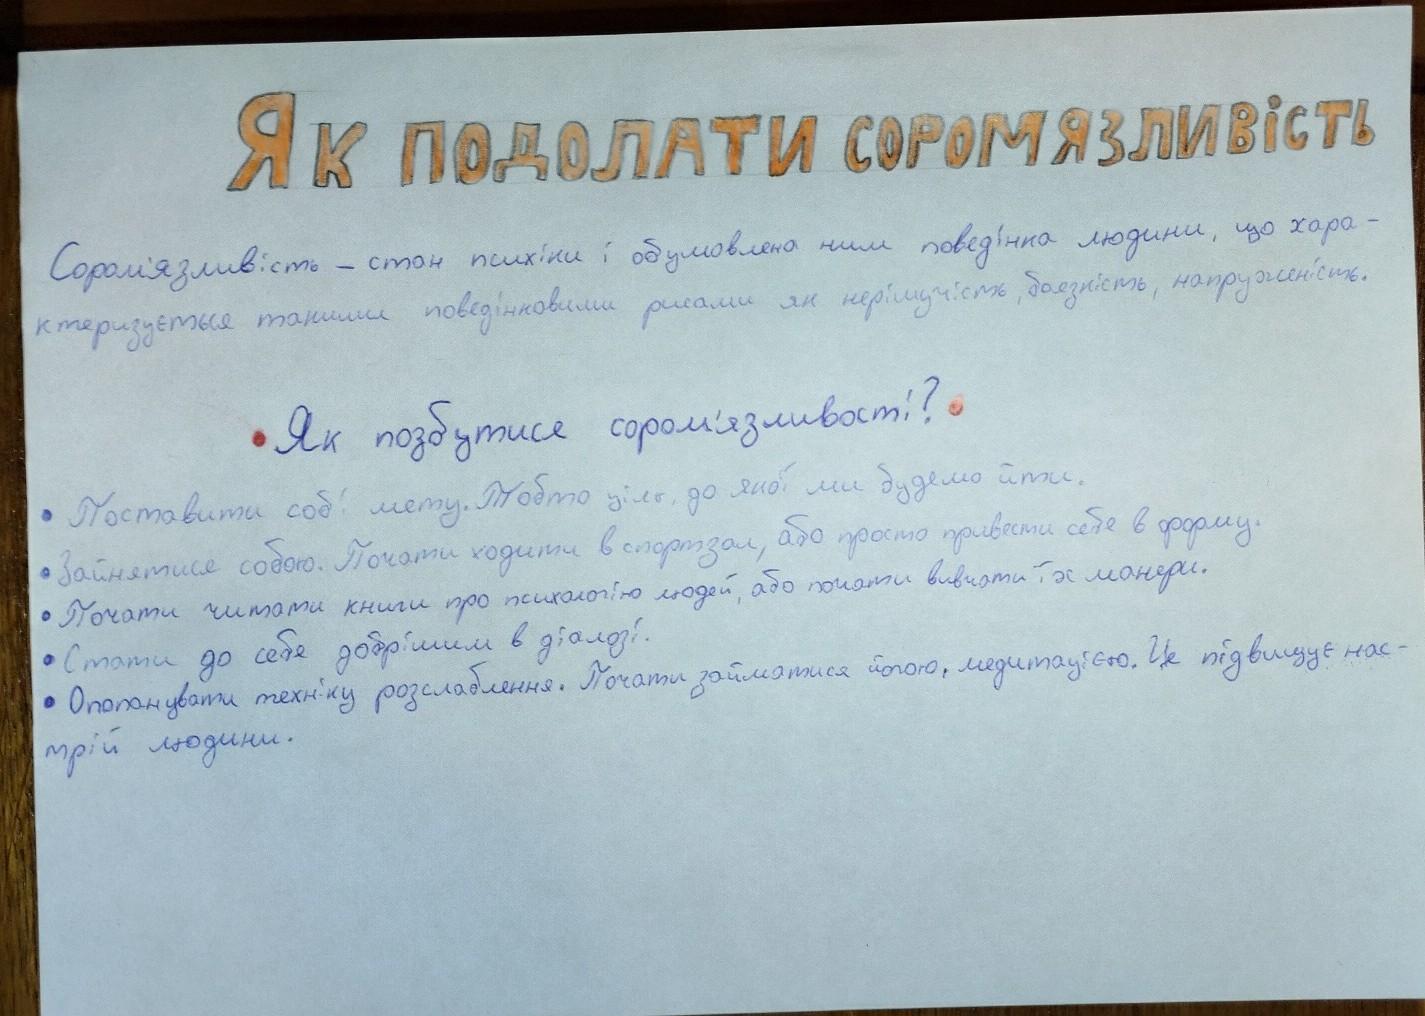 Як подолати соромязливість
Сором'язливість – стан психіки і обумовлена ним поведінка людини, що хара-
ктеризується такими поведінковими рисами як нерішучість, боязкість, напруженість.
• Як позбутися сором'язливості? •
• Поставити собі мету. Тобто ціль, до якої ми будемо йти.
• Зайнятися собою. Почати ходити в спортзал, або просто привести себе в форму.
• Почати читати книги про психологію людей, або почати вивчати їх манери.
• Стати до себе добрішим в діалозі.
• Опопанувати техніку розслаблення. Почати займатися йогою, медитацією. Це підвищує нас-
трій людини.